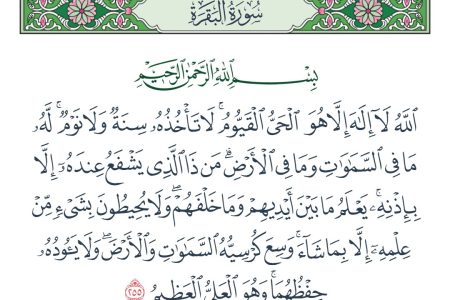 سُورَةُ الْبَقَرَةِ
بِسْمِ ٱللَّهِ ٱلرَّحْمَٰنِ ٱلرَّحِيمِ
ٱللَّهُ لَآ إِلَٰهَ إِلَّا هُوَ ٱلْحَىُّ ٱلْقَيُّومُ ۚ لَا تَأْخُذُهُۥ سِنَةٌ وَلَا نَوْمٌ ۚ لَّهُۥ
مَا فِى ٱلسَّمَٰوَٰتِ وَمَا فِى ٱلْأَرْضِ ۗ مَن ذَا ٱلَّذِى يَشْفَعُ عِندَهُۥٓ إِلَّا
بِإِذْنِهِۦ ۚ يَعْلَمُ مَا بَيْنَ أَيْدِيهِمْ وَمَا خَلْفَهُمْ ۖ وَلَا يُحِيطُونَ بِشَىْءٍ مِّنْ
عِلْمِهِۦٓ إِلَّا بِمَا شَآءَ ۚ وَسِعَ كُرْسِيُّهُ ٱلسَّمَٰوَٰتِ وَٱلْأَرْضَ ۖ وَلَا يَـُٔودُهُۥ
حِفْظُهُمَا ۚ وَهُوَ ٱلْعَلِىُّ ٱلْعَظِيمُ ٢٥٥